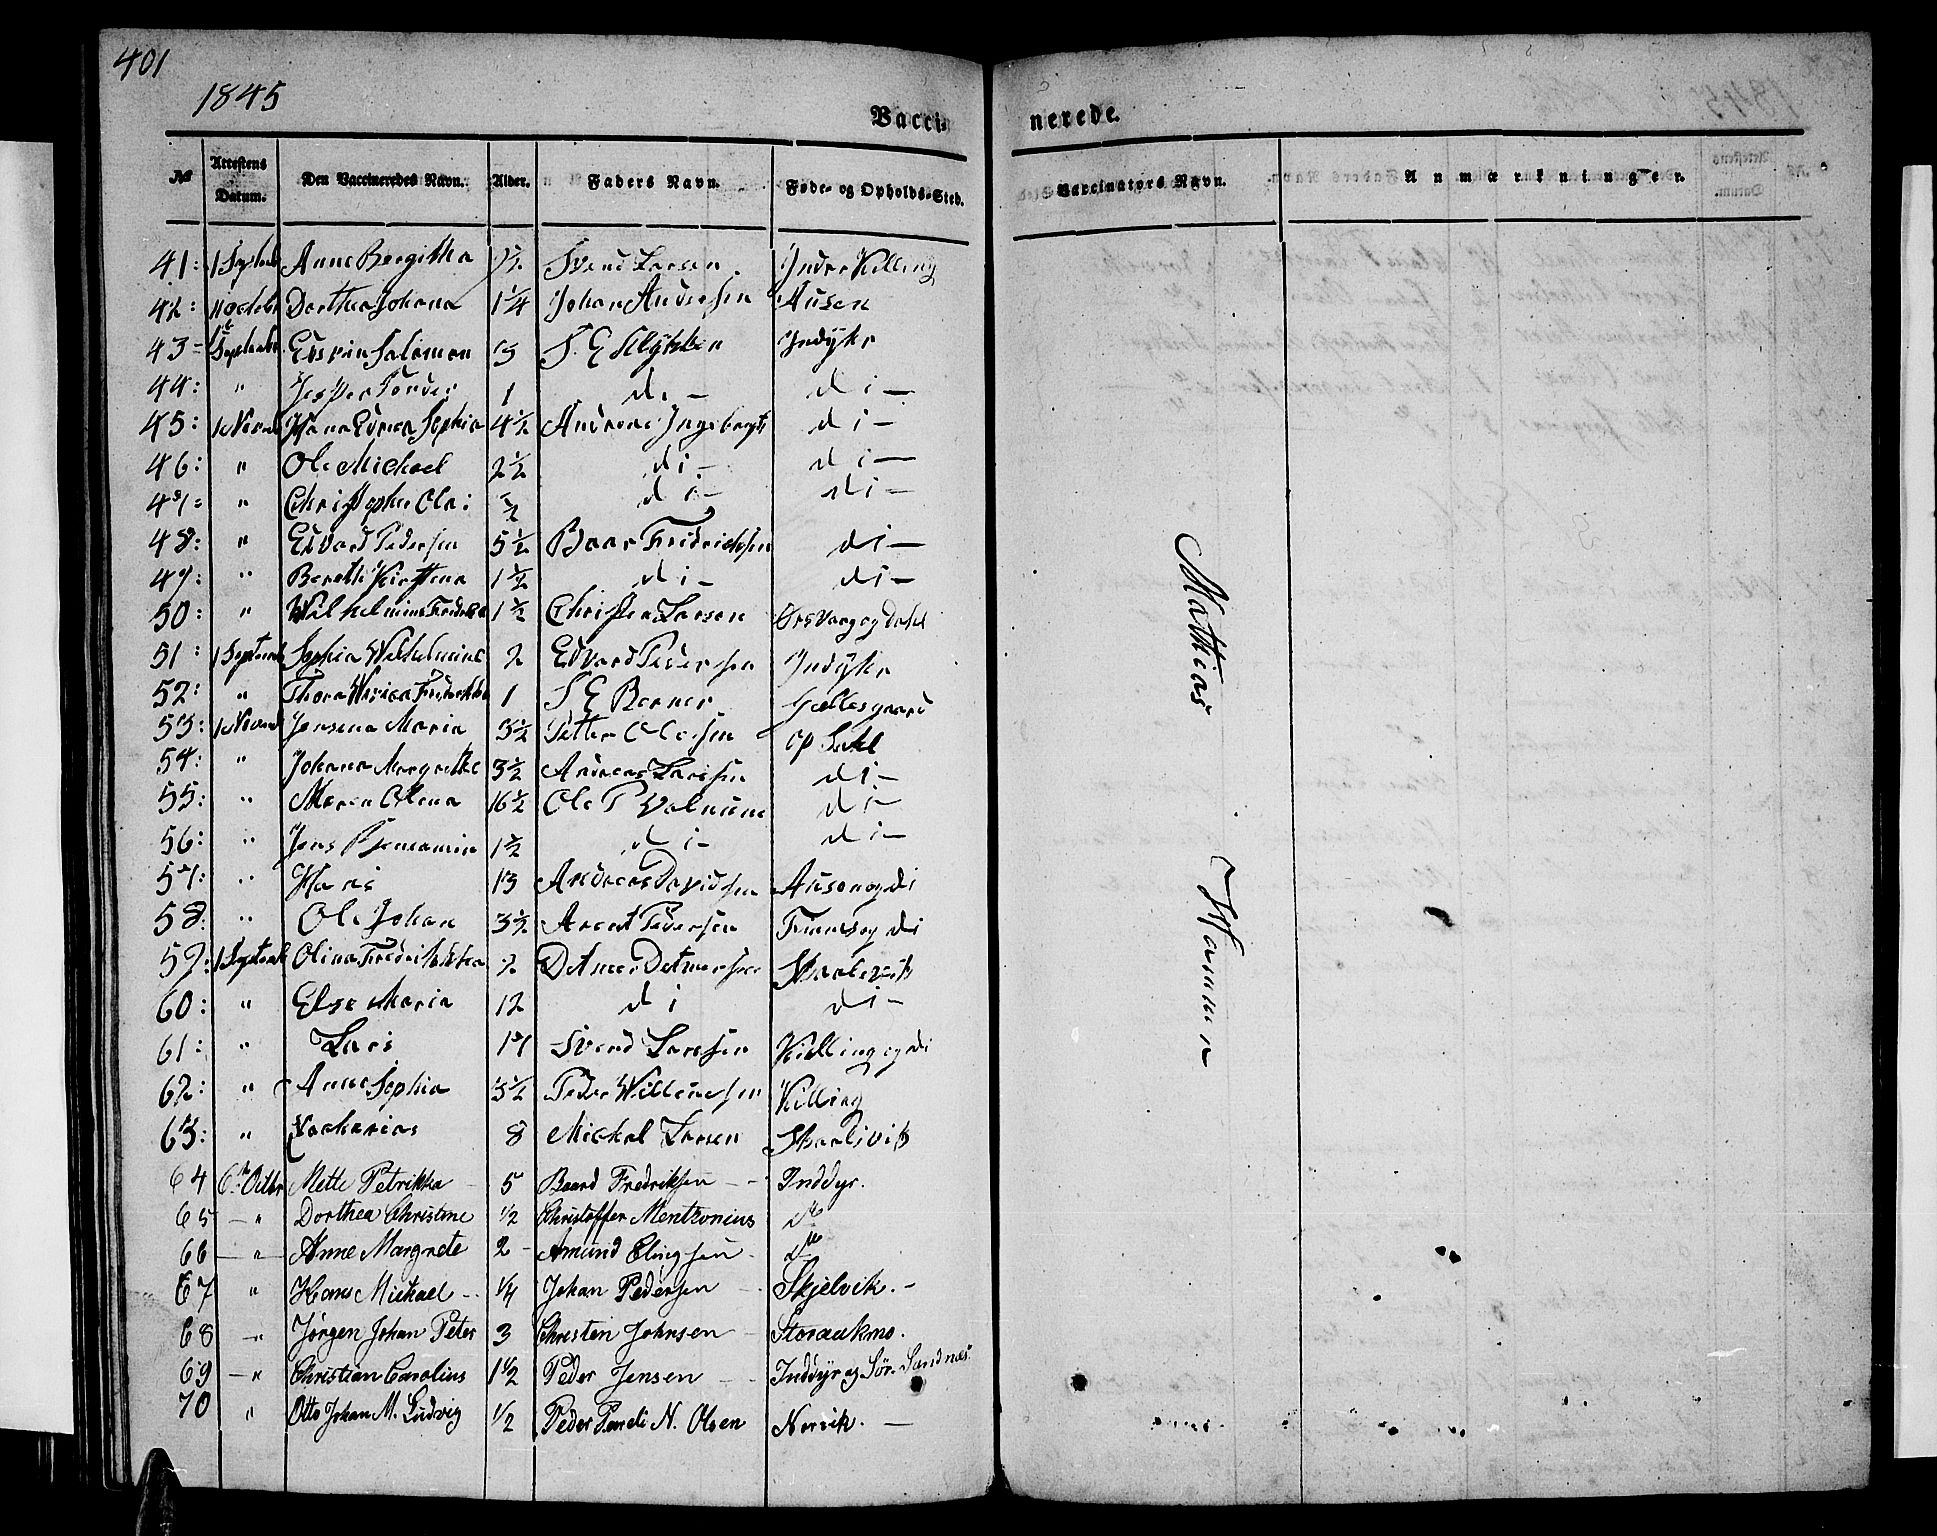 401
1845
Vacci- nerede.
No Attestens Datum. Den Vaccineredes Navn. Alder. Faders Navn. Føde- og Opholds-Sted. Vaccinators Navn. Anmærkninger.
41: 1 Septemb Anne Bergitha Svend Larsen Indre Killing
42: 11 Octobr Dorthea Johana 1 1/4 Johan Andersen Ausen
43 Septembr Edvin Salomon 3 S. E. Indÿhr
44: " Jesper Tønder 1 di- di-
45: 1 Novemb Hana Edvea Sophia 4 1/2 Andreas Ingebregts di-
46: " Ole Michael 2 1/2 di- di-
47: " Christopher Olai 1/2 di- di-
48: " Edvard Pedersen 5 1/2 Baar Fridrichsen di-
49: " Bereth Kirstena 1 1/2 di- di-
50: " Wilhelmine Fredrikka 1 1/2 Christen Larsen Ørsvaag og Dahl
51: 1 Septemb Sophia Wilhelmine 2 Edvard Pedersen Indÿhr
52: " Thora Fredrikka 1 S E Berner Gellesgaard
53: 1 Novemb Jensena Maria 3 1/2 Petter Olesen Opsahl
54: " Johana Margrethe 3 1/2 Andreas Larssen di-
55: " Maren Olena 16 1/2 Ole P Valnum di-
56: " Jens Benjamin 1 1/2 di- di-
57: " Hans 13 Andreas Davidsen Ausen og di
58: " Ole Johan 3 1/2 Arent Pedersen Finnes og di
59: 1 Septemb Olina Fredrikkka 2 Detmer Detmersen Skaalsvik
60: " Else Maria 12 di di-
61: " Lars 17 Svend Larssen Killing og di
62: " Anne Sophia 3 1/2 Peder Willumsen Killing
63: " Zacharias 8 Mickal Larsen Skaalsvik
64 6te Octbr Mette Petrikka 5 Baard Fredriksen Inddyr.
65 " Dorthea Christine 1/2 Christoffer Mentzonius do
66 " Anne Margrete 2 Amund Elingsen do
67 " Hans Michael 1/4 Johan Pedersen Skjelvik.
68 " Jørgen Johan Peter 3 Christen Johnsen Storaakmo.
69 " Christian Carolius 1 1/2 Peder Jensen Inddyr og Sør. Sandnæs
70 " Otto Johan M. Ludvig 1/2 Peder Pareli N. Olsen Norvik.
Mathias Hammer